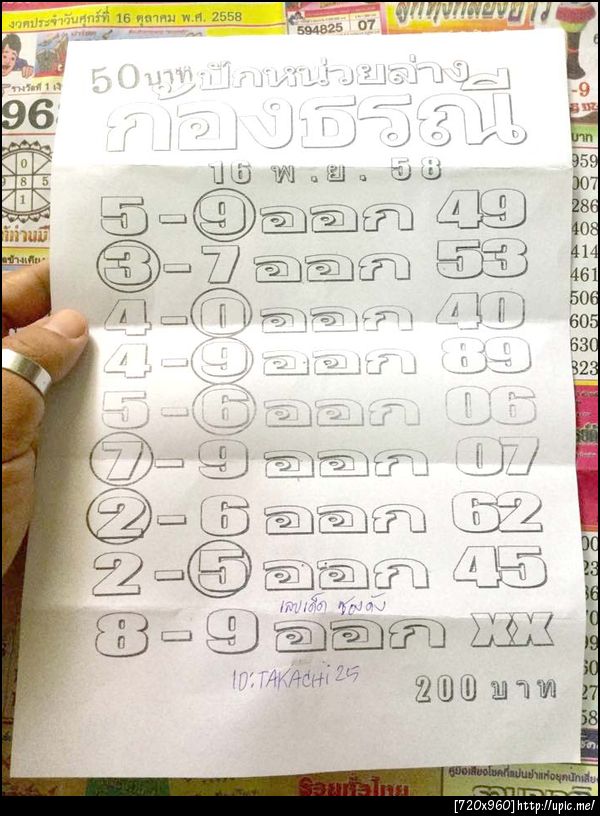 งวดประจำวันศุกร์ที่ 16 ตุลาคม พ.ศ. 2558
594825 07
รางวัลที่ 1
50 บาท ปักหน่วยล่าง
ก้องธรณี
16 พ.ย. 58
5-9 ออก 49
3-7 ออก 53
4-0 ออก 40
4-9 ออก 89
5-6 ออก 06
7-9 ออก 07
2-6 ออก 62
2-5 ออก 45
เลขเด็ด ซองดัง
8-9 ออก XX
ID:TAKACHI 25
200 บาท
[720x960]http://upic.me/